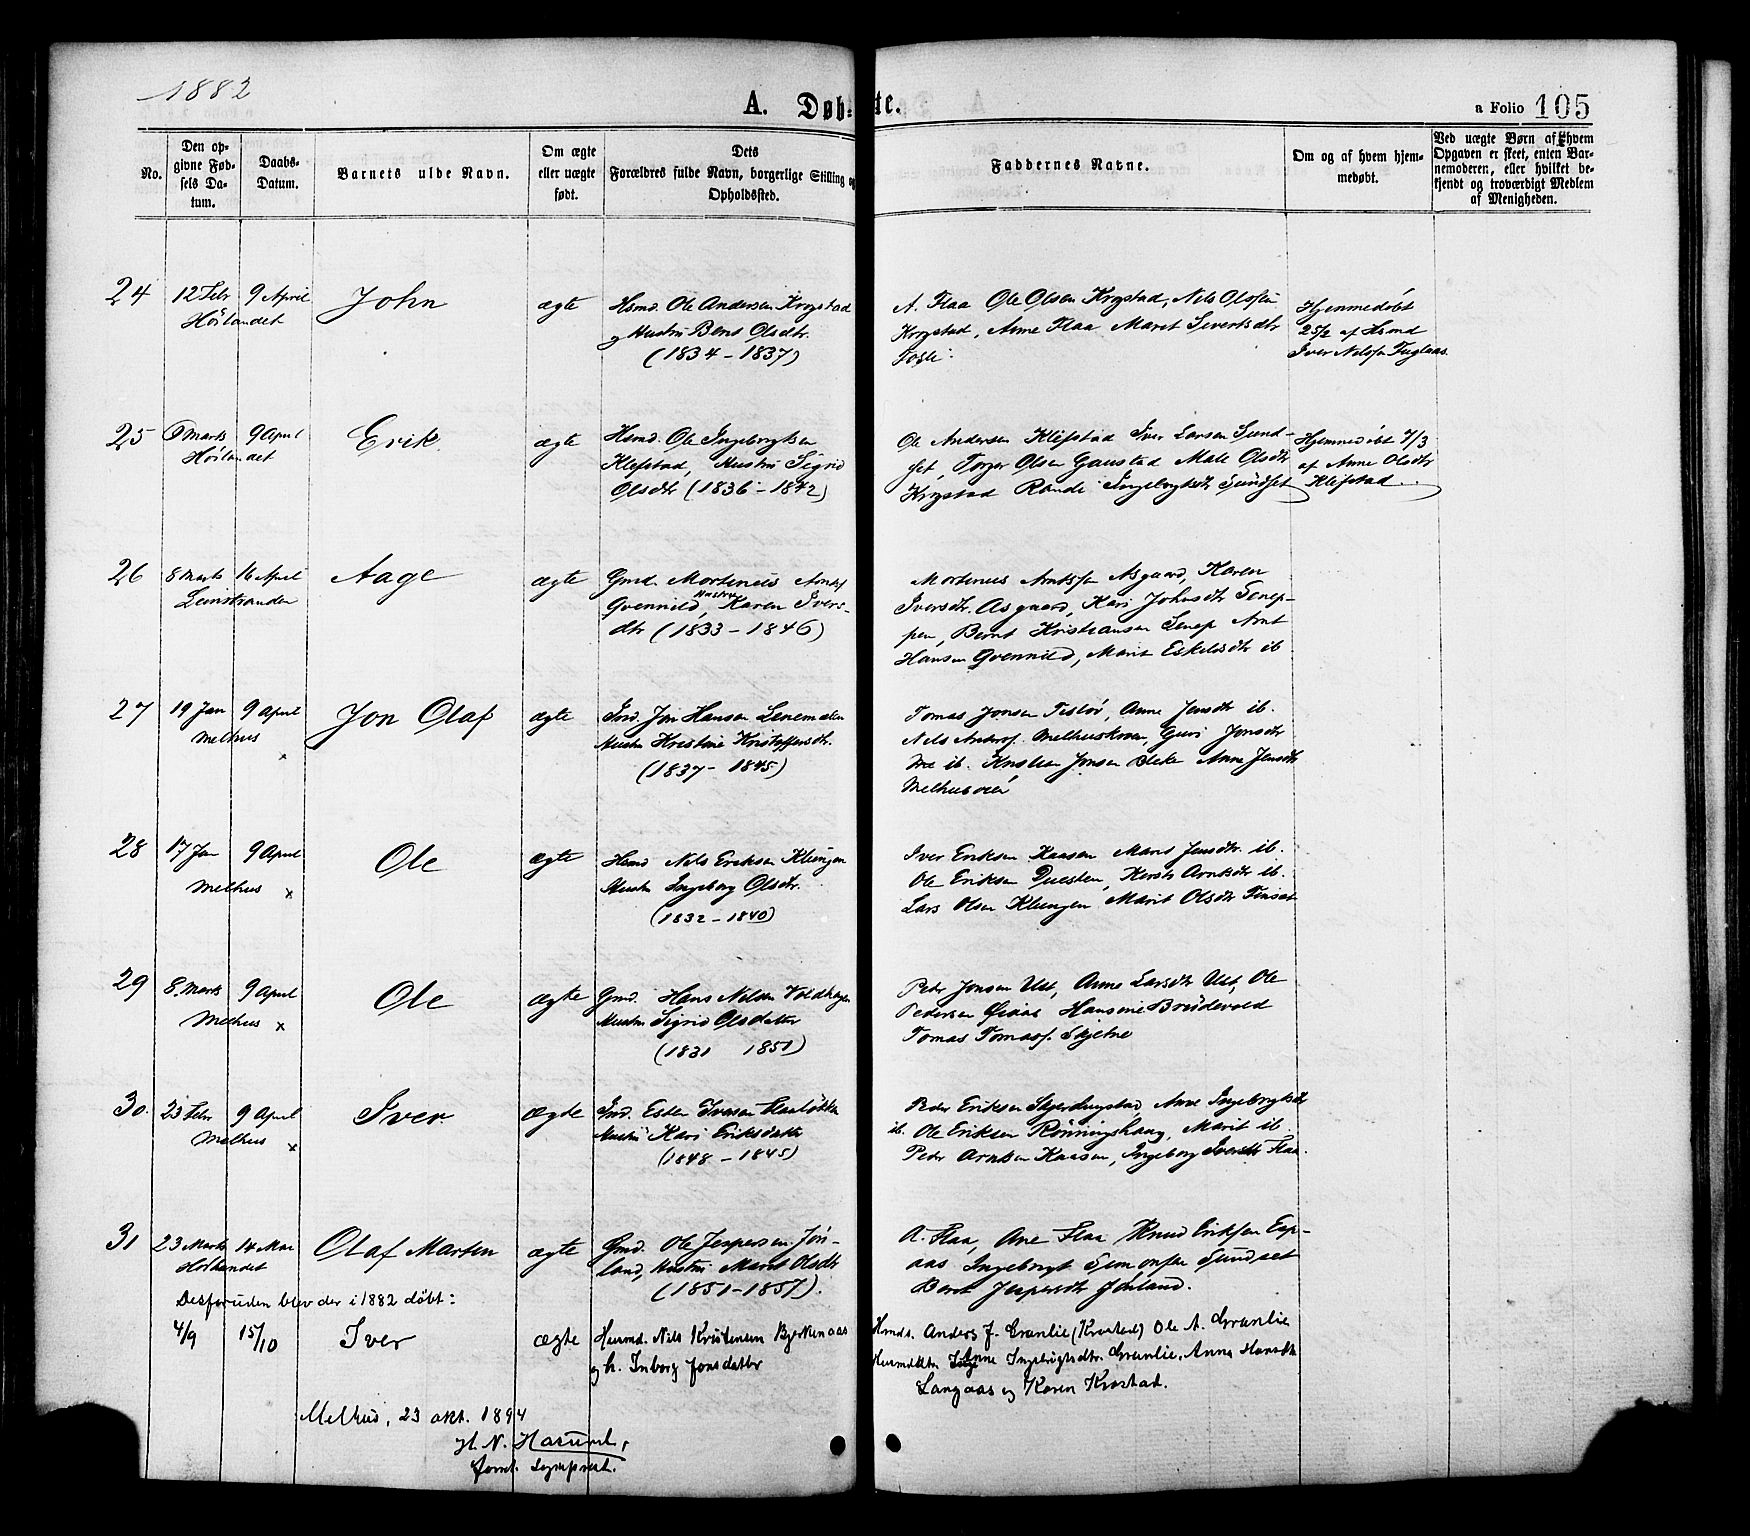 1882
A. Døb-
te.
a Folio 105
No.
Den op-
givne Fød-
sels Da-
tum.
Daabs-
Datum.
Barnets ulde Navn.
Om ægte
eller uægte
født.
Dets
Forældres fulde Navn, borgerlige Stilling og
Opholdssted.
Faddernes Navne.
Om og af hvem hjem-
medøbt.
Ved uægte Børn af hvem
Opgaven er skeet, enten Bar-
nemoderen, eller hvilket be-
kjendt og troværdigt Medlem
af Menigheden.
24
12 Febr
9 April
Hölandet
John
ægte
Hsmd. Ole Andersen Krogstad
og Hustru Beret Olsdtr.
(1834 - 1837)
A. Flaa Ole Olsen Krogstad, Nils Olsen
Krogstad, Anne Flaa Maret Sivertsdtr
Hjemmedøbt
25/2 af Hsmd
Iver Nilssen Fuglaas
25
Marts
9 April
Hölandet
Erik
ægte
Hsmd. Ole Ingebrigtsen
Klefstad, Hustru Sigrid
Olsdtr (1836 - 1842)
Ole Andersen Klefstad Iver Larsen Sund-
set, Olsen Gaustad Olsdtr
Krogstad Ingebrigtsdtr Sundset
Hjemmedøbt 7/3
af Anne Olsdtr
Klefstad
26
8 Marts
16 April
Leinstranden
Aage
ægte
Gmd. Mortinus Arntsf
Gvennild, Hustru Karen Ivers-
dtr (1833 - 1846)
Mortinus Arntssen Asgaard, Karen
Iversdtr. Asgaard, Kari Johnsdtr
Bernt Kristiansen Arnt
Hansen Gvennild, Marit Eskilsdtr ib
27
19 Jan
9 April
Melhus
x
Jon Olaf
ægte
Ind. Jon Hansen
Hustru Kristine Kristoffersdtr.
(1837 - 1845)
Tomas Jonsen Anne Jensdtr ib.
Nils Guri Jonsdtr
ib. Jonsen Anne Jensdtr
28
17 Jan
9 April
Melhus
x
Ole
ægte
Hsmd Nils Eriksen Klungen
Hustru Ingeborg Olsdtr.
(1832 - 1840)
Iver Eriksen Kaasen Jensdtr ib.
Ole Eriksen Arntsdtr ib.
Lars Olsen Klungen Marit Olsdtr
29
8. Marts
9 April
Melhus
x
Ole
ægte
Gmd. Hans Nilsen
Hustru Sigrid Olsdatter
(1831 1851)
Peder Jonsen Ust, Anne Larsdtr Ust, Ole
Pedersen Hansine Brudevold
Tomas Tomasf. Skjetne
30.
23 Febr
9 April
Melhus
x
Iver.
ægte
Ind. Esten Iversen
Hustru Kari Eriksdatter
(1848 - 1845)
Peder Eriksen Anne Ingebrigtsdtr
ib. Ole Eriksen Rönningshaug, Marit ib
Peder Arntsen Kaasen, Ingeborg Iversdtr Flaa.
31
23 Marts
14 Mai
Hölandet
Olaf Martin
ægte
Gmd. Ole Jespersen Jör-
land, Hustru Marit Olsdtr
(1851 - 1857).
A. Flaa, Ane Flaa Knud Eriksen Esp-
aas Ingebrigt Simonsen Sundset
Beret Jespersdtr Jörland.
Desforuden blev der i 1882 døbt:
4/9
15/10
Iver
ægte
Husmd. Nils Kristensen Bjerkenaas
og h. Inborg Jonsdatter
Hmds. Anders J. Granlie (Krostad) Ole A. Granlie
Anne Ingebrigtsdtr. Granlie, Anna Hansdtr
Langaas og Karen Krostad.
Melhus, 23 okt. 1894